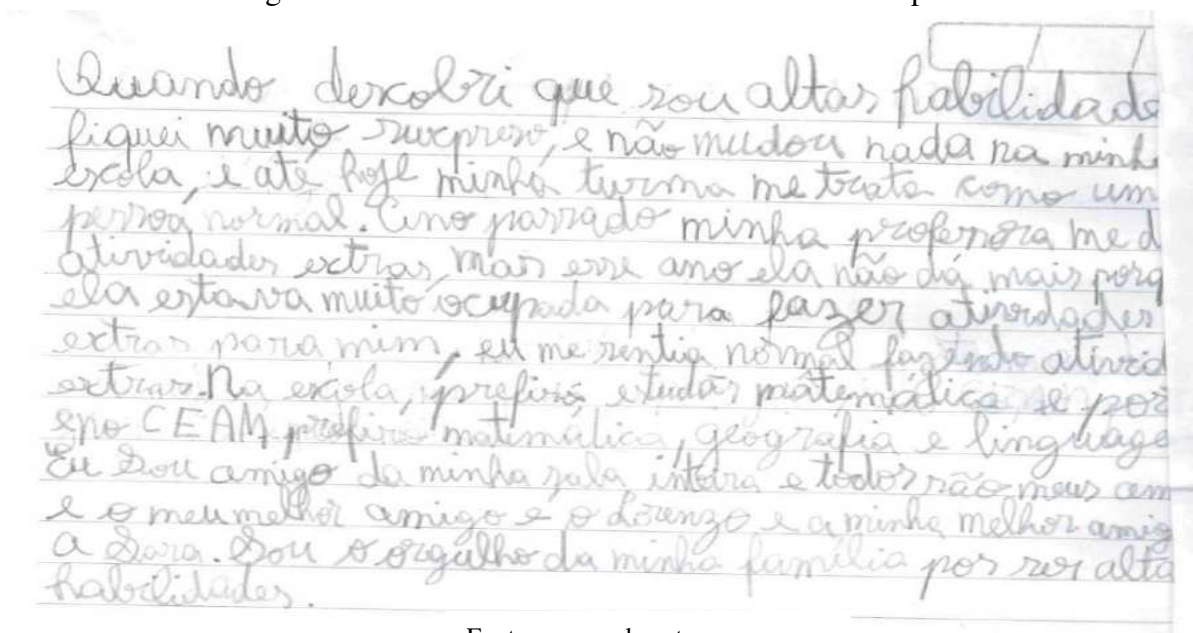 Quando descobri que sou altas habilidade
fiquei muito surpreso, e não mudou nada na minh
escola, e até hoje minha turma me trata como um
pessoa normal. Ano passado minha professora me d
atividades extras, mas esse ano ela não dá mais porq
ela estava muito ocupada para fazer atividades
extras para mim, eu me sentia normal fazendo ativid
extras. Na escola, prefiro estudar matemática e por
e no CEAM prefiro matemática, geografia e linguage
Eu sou amigo da minha sala inteira e todos são meus am
e o meu melhor amigo e o Lorenzo e a minha melhor amig
a Sara. Sou o orgulho da minha família por ser alta
habilidades.